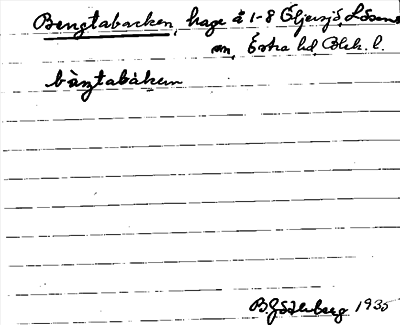 Bengtabacken, hage å 1-8 Öljersjö Lösens
sn, Östra hd, Blek. l.
bàŋtabákeın
B. Götlberg 1935